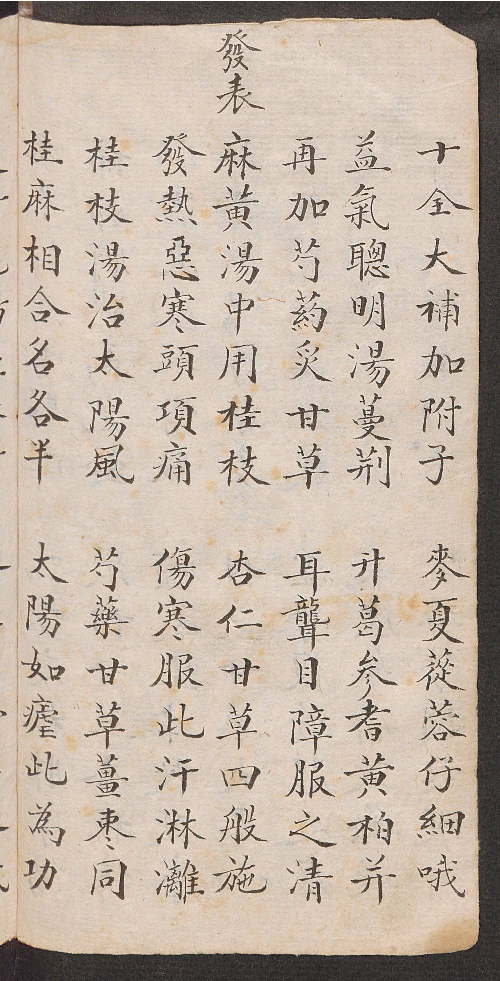 十全大補加附子　麥夏蓯蓉仔細哦
益氣聰明湯蔓荆　升葛参耆黄柏并
再加芍药炙甘草　耳聾目障服之清
發表
麻黄湯中用桂枝　杏仁甘草四般施
發熱惡寒頭項痛　傷寒服此汗淋灕
桂枝湯治太陽風　芍藥甘草薑枣同
桂麻相合名各半　太陽如瘧此為功